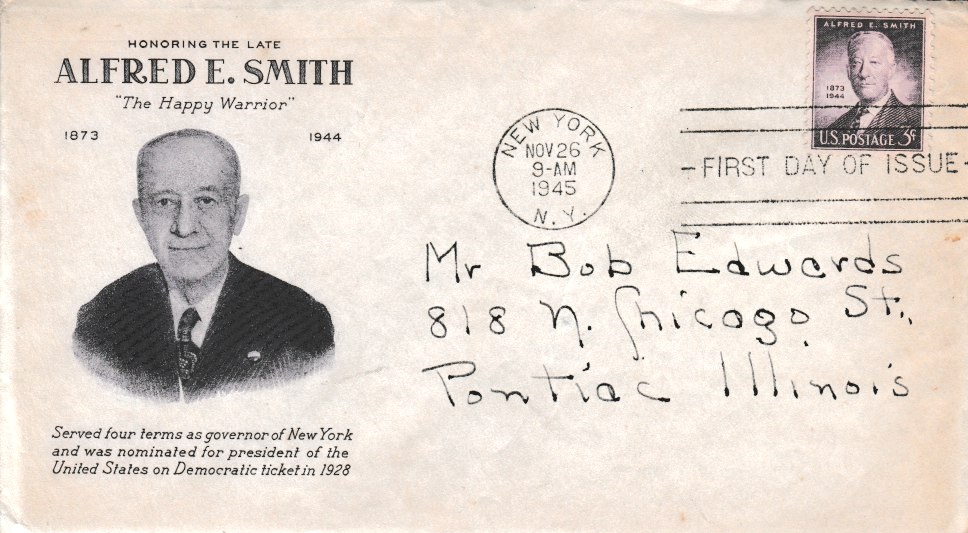 HONORING THE LATE
ALFRED E. SMITH
"The Happy Warrior"
1873 1944
Served four terms as governor of New York
and was nominated for president of the
United States on Democratic ticket in 1928
NEW YORK
NOV 26
9-AM
1945
N.Y.
ALFRED E. SMITH
1873
1944
U.S. POSTAGE 3¢
-FIRST DAY OF ISSUE-
Mr Bob Edwards
818 N. Chicago St.,
Pontiac Illinois